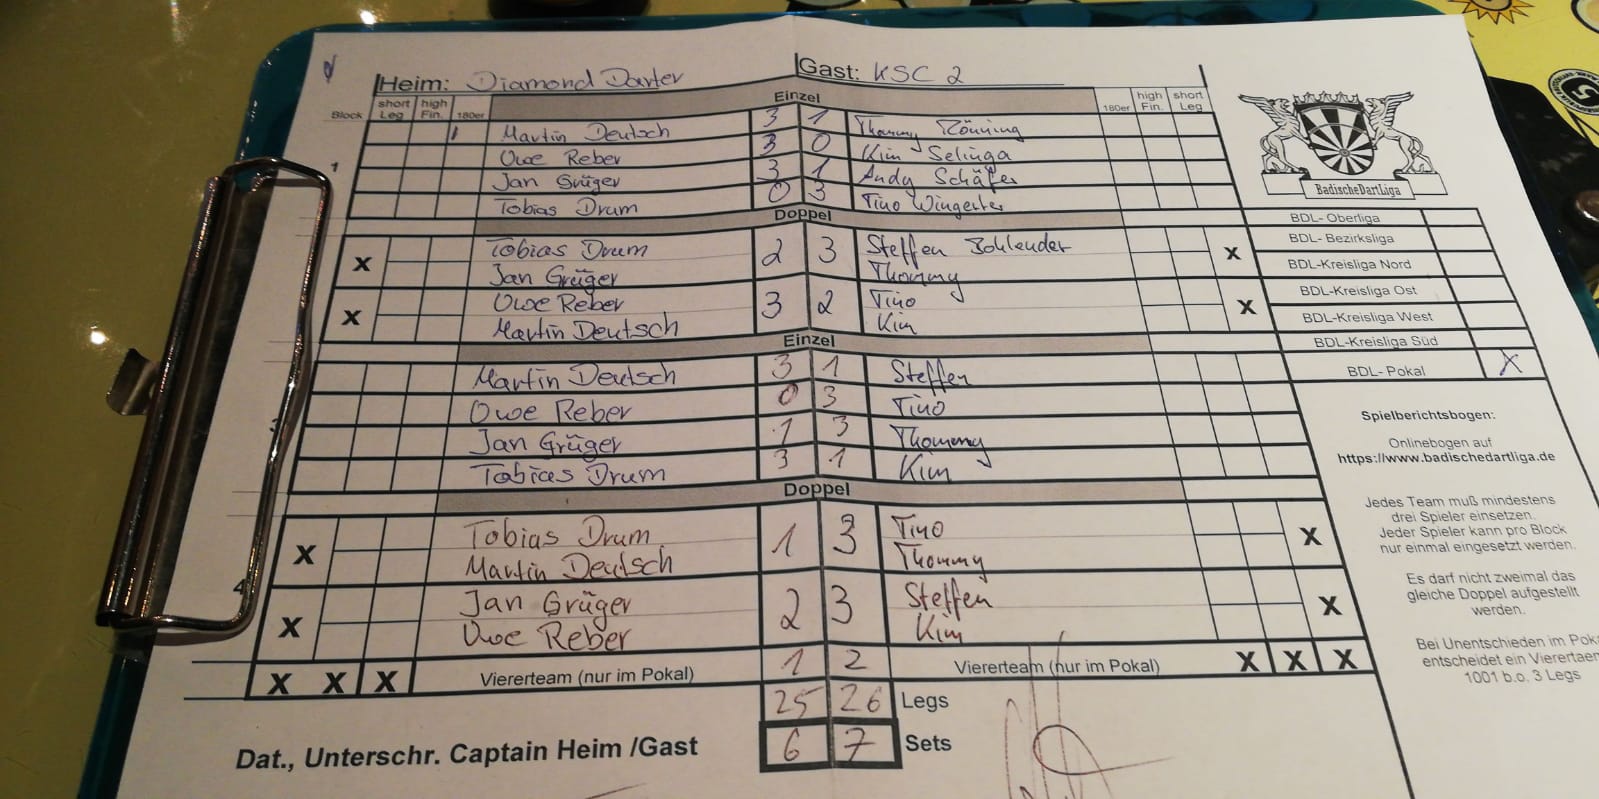 Heim: Diamond Darter Gast: KSC 2
Block short Leg high Fin. 180er Einzel 180er high Fin. short Leg
Martin Deutsch 3 1 Thommy Rönning
1 Uwe Reber 3 0 Kim Selinga
Jan Grüger 3 1 Andy Schäfer
Tobias Drum 0 3 Tino Wingerter
Doppel
X Tobias Drum 2 3 Steffen Bohlender X
Jan Grüger Thommy
X Uwe Reber 3 2 Tino X
Martin Deutsch Kim
Einzel
Martin Deutsch 3 1 Steffen
Uwe Reber 0 3 Tino
Jan Grüger 1 3 Thommy
Tobias Drum 3 1 Kim
Doppel
X Tobias Drum 1 3 Tino X
Martin Deutsch Thommy
4 X Jan Grüger 2 3 Steffen X
Uwe Reber Kim
X X X Viererteam (nur im Pokal) 1 2 Viererteam (nur im Pokal) X X X
25 26 Legs
Dat., Unterschr. Captain Heim /Gast 6 7 Sets
BadischeDartLiga
BDL- Oberliga
BDL- Bezirksliga
BDL-Kreisliga Nord
BDL-Kreisliga Ost
BDL-Kreisliga West
BDL-Kreisliga Süd
BDL- Pokal X
Spielberichtsbogen:
Onlinebogen auf
https://www.badischedartliga.de
Jedes Team muß mindestens
drei Spieler einsetzen.
Jeder Spieler kann pro Block
nur einmal eingesetzt werden.
Es darf nicht zweimal das
gleiche Doppel aufgestellt
werden.
Bei Unentschieden im Poka
entscheidet ein Vierertaem
1001 b.o. 3 Legs